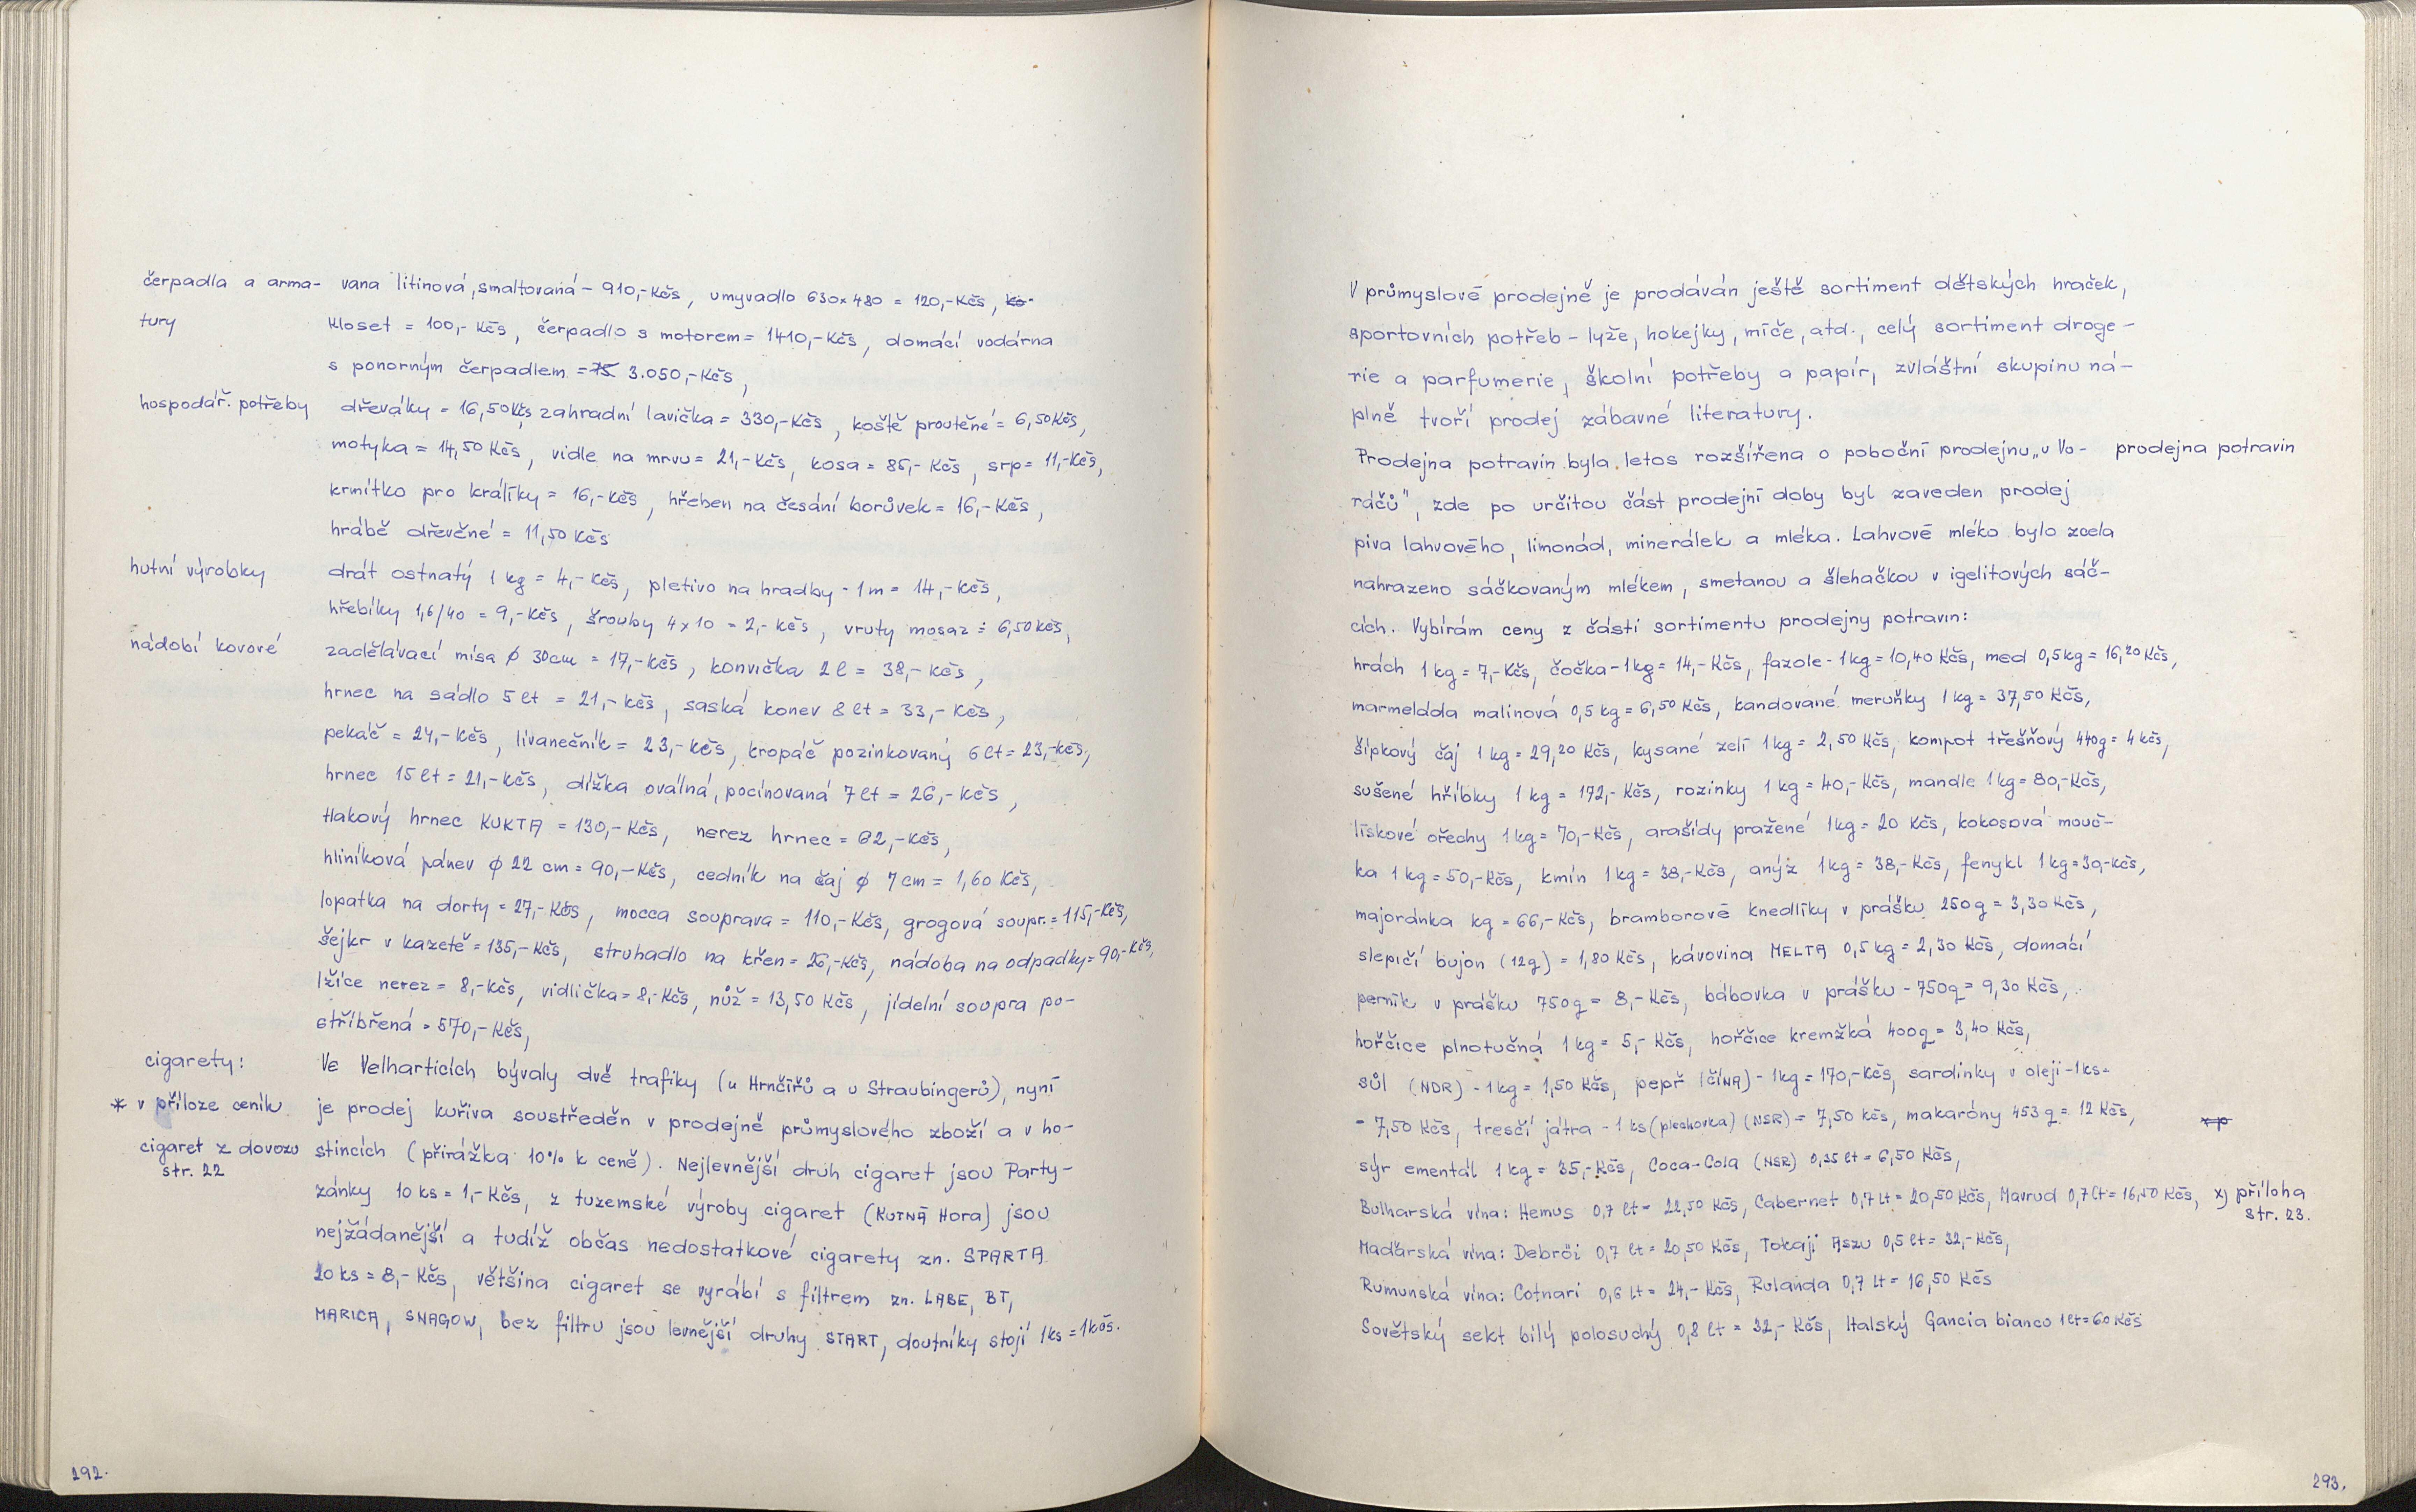 čerpadla a arma- vana litinová, smaltovaná - 910,- Kčs, umyvadlo 630x480 = 120,- Kčs, ko-
tury kloset = 100,- Kčs, čerpadlo s motorem = 1410,- Kčs, domácí vodárna
s ponorným čerpadlem = 75 3.050,- Kčs,
hospodář. potřeby dřeváky = 16,50 Kčs, zahradní lavička = 330,- Kčs, koště proutěné = 6,50 Kčs,
motyka = 14,50 Kčs, vidle na mrvu = 21,- Kčs, kosa = 85,- Kčs, srp = 11,- Kčs,
krmítko pro králíky = 16,- Kčs, hřeben na česání borůvek = 16,- Kčs,
hrábě dřevěné = 11,50 Kčs
hutní výrobky drát ostnatý 1 kg = 4,- Kčs, pletivo na hradby - 1 m = 14,- Kčs,
hřebíky 1,6/40 = 9,- Kčs, šrouby 4x10 = 2,- Kčs, vruty mosaz = 6,50 Kčs,
nádobí kovové zadělávací mísa ø 30cm = 17,- Kčs, konvička 2 l = 38,- Kčs,
hrnec na sádlo 5 lt = 21,- Kčs, saská konev 8 lt = 33,- Kčs,
pekáč = 24,- Kčs, lívanečník = 23,- Kčs, kropáč pozinkovaný 6 lt = 23,- Kčs,
hrnec 15 lt = 21,- Kčs, dížka oválná, pocínovaná 7 lt = 26,- Kčs,
tlakový hrnec KUKTA = 130,- Kčs, nerez hrnec = 62,- Kčs,
hliníková pánev ø 22 cm = 90,- Kčs, cedník na čaj ø 7 cm = 1,60 Kčs,
lopatka na dorty = 27,- Kčs, mocca souprava = 110,- Kčs, grogová soupr. = 115,- Kčs,
šejkr v kazetě = 135,- Kčs, struhadlo na křen = 26,- Kčs, nádoba na odpadky = 90,- Kčs,
lžíce nerez = 8,- Kčs, vidlička = 8,- Kčs, nůž = 13,50 Kčs, jídelní soupra po-
stříbřená = 570,- Kčs,
cigarety: Ve Velharticích bývaly dvě trafiky (u Hrnčířů a u Straubingerů), nyní
* v příloze ceník je prodej kuřiva soustředěn v prodejně průmyslového zboží a v ho-
cigaret z dovozu stincích (přirážka 10% k ceně). Nejlevnější druh cigaret jsou Party-
str. 22
zánky 10 ks = 1,- Kčs, z tuzemské výroby cigaret (KUTNÁ Hora) jsou
nejžádanější a tudíž občas nedostatkové cigarety zn. SPARTA
20 ks = 8,- Kčs, většina cigaret se vyrábí s filtrem zn. LABE, BT,
MARICA, SNAGOW, bez filtru jsou levnější druhy START, doutníky stojí 1ks = 1 Kčs.
192.
V průmyslové prodejně je prodáván ještě sortiment dětských hraček,
sportovních potřeb - lyže, hokejky, míče, atd., celý sortiment droge-
rie a parfumerie, školní potřeby a papír, zvláštní skupinu ná-
plně tvoří prodej zábavné literatury.
Prodejna potravin byla letos rozšířena o poboční prodejnu „u Vo- prodejna potravin
ráčů", zde po určitou část prodejní doby byl zaveden prodej
piva lahvového, limonád, minerálek a mléka. Lahvové mléko bylo zcela
nahrazeno sáčkovaným mlékem, smetanou a šlehačkou v igelitových sáč-
cích. Vybírám ceny z části sortimentu prodejny potravin:
hrách 1 kg = 7,- Kčs, čočka - 1kg = 14,- Kčs, fazole - 1kg = 10,40 Kčs, med 0,5 kg = 16,20 Kčs,
marmeláda malinová 0,5 kg = 6,50 Kčs, kandované meruňky 1 kg = 37,50 Kčs,
šípkový čaj 1 kg = 29,20 Kčs, kysané zelí 1 kg = 2,50 Kčs, kompot třešňový 440g = 4 Kčs,
sušené hříbky 1 kg = 172,- Kčs, rozinky 1 kg = 40,- Kčs, mandle 1 kg = 80,- Kčs,
lískové ořechy 1 kg = 70,- Kčs, arašídy pražené 1kg = 20 Kčs, kokosová mouč-
ka 1 kg = 50,- Kčs, kmín 1 kg = 38,- Kčs, anýz 1 kg = 38,- Kčs, fenykl 1 kg = 30,- Kčs,
majoránka kg = 66,- Kčs, bramborové knedlíky v prášku 250g = 3,30 Kčs,
slepičí bujon (12g) = 1,80 Kčs, kávovina MELTA 0,5 kg = 2,30 Kčs, domácí
perník v prášku 750g = 8,- Kčs, bábovka v prášku - 750g = 9,30 Kčs,
hořčice plnotučná 1 kg = 5,- Kčs, hořčice kremžká 400g = 3,40 Kčs,
sůl (NDR) - 1 kg = 1,50 Kčs, pepř (ČÍNA) - 1kg = 170,- Kčs, sardinky v oleji - 1 ks =
= 7,50 Kčs, tresčí játra - 1 ks (plechovka) (NSR) = 7,50 Kčs, makaróny 453 g = 12 Kčs, xp
sýr ementál 1 kg = 35,- Kčs, Coca-Cola (NSR) 0,35 lt = 6,50 Kčs,
Bulharská vína: Hemus 0,7 lt = 22,50 Kčs, Cabernet 0,7 lt = 20,50 Kčs, Mavrud 0,7 lt = 16,50 Kčs, x) příloha
str. 23.
Maďarská vína: Debröi 0,7 lt = 20,50 Kčs, Tokaji Aszu 0,5 lt = 32,- Kčs,
Rumunská vína: Cotnari 0,6 lt = 24,- Kčs, Rulanda 0,7 lt = 16,50 Kčs
Sovětský sekt bílý polosuchý 0,8 lt = 32,- Kčs, Italský Gancia bianco 1 lt = 60 Kčs
293.